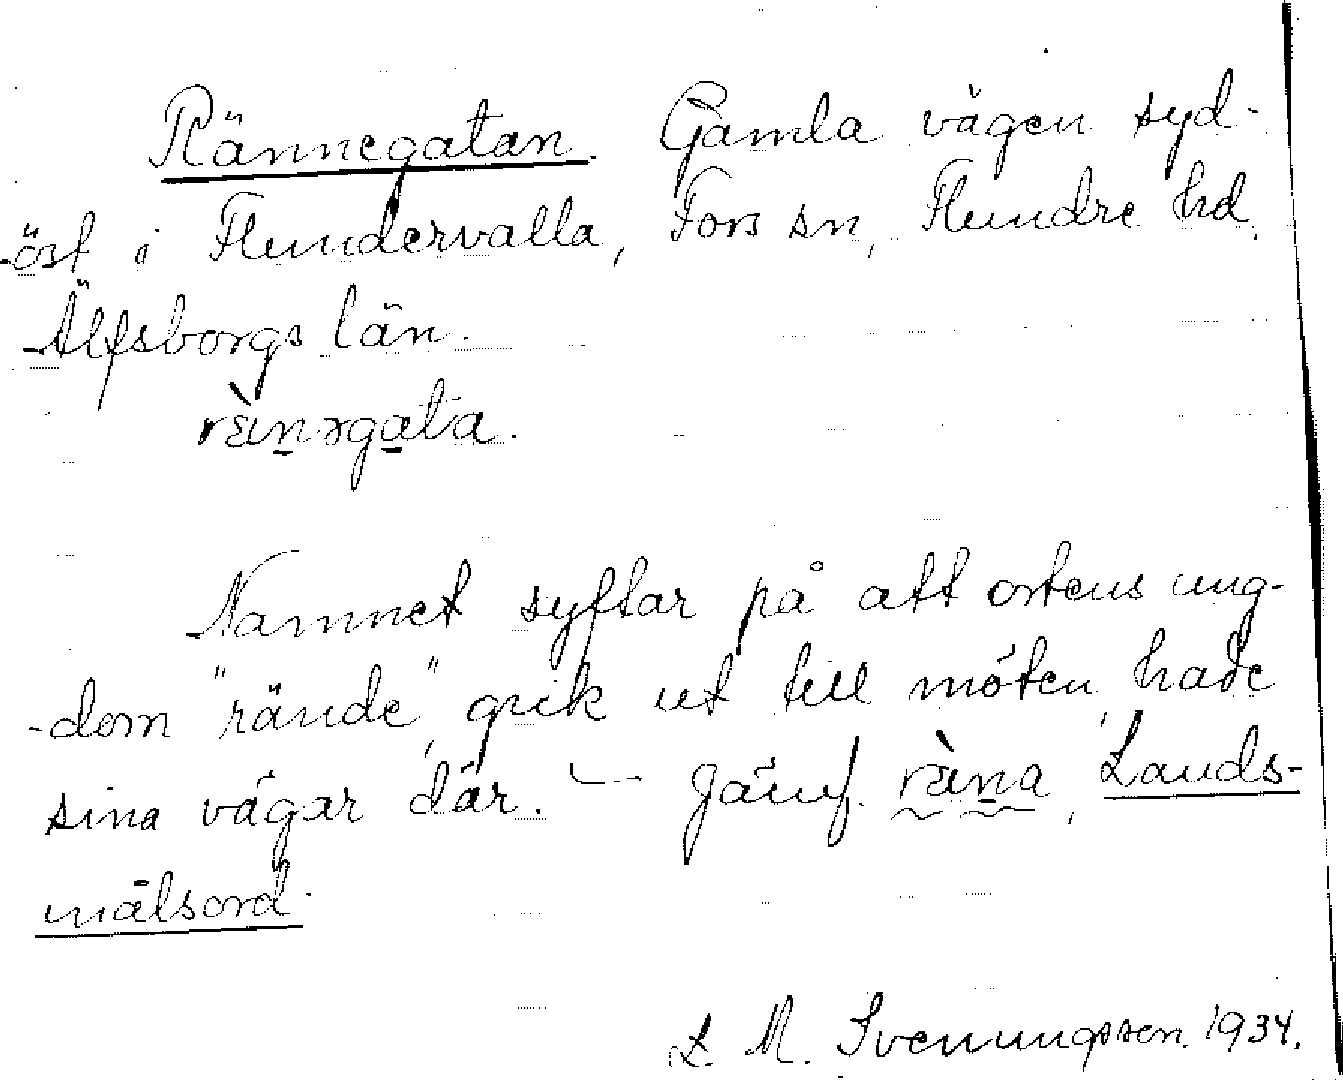 Rännegatan. Gamla vägen syd-
-öst i Flundervalla, Fors sn, Flundre hd,
Älfsborgs län.
rä̀nəgata.
Namnet syftar på att ortens ung-
-dom "rände", gick ut till möten, hade
sina vägar där. — Jämf. rä̀na, Lands-
målsord.
L. M. Svenungsson. 1934.